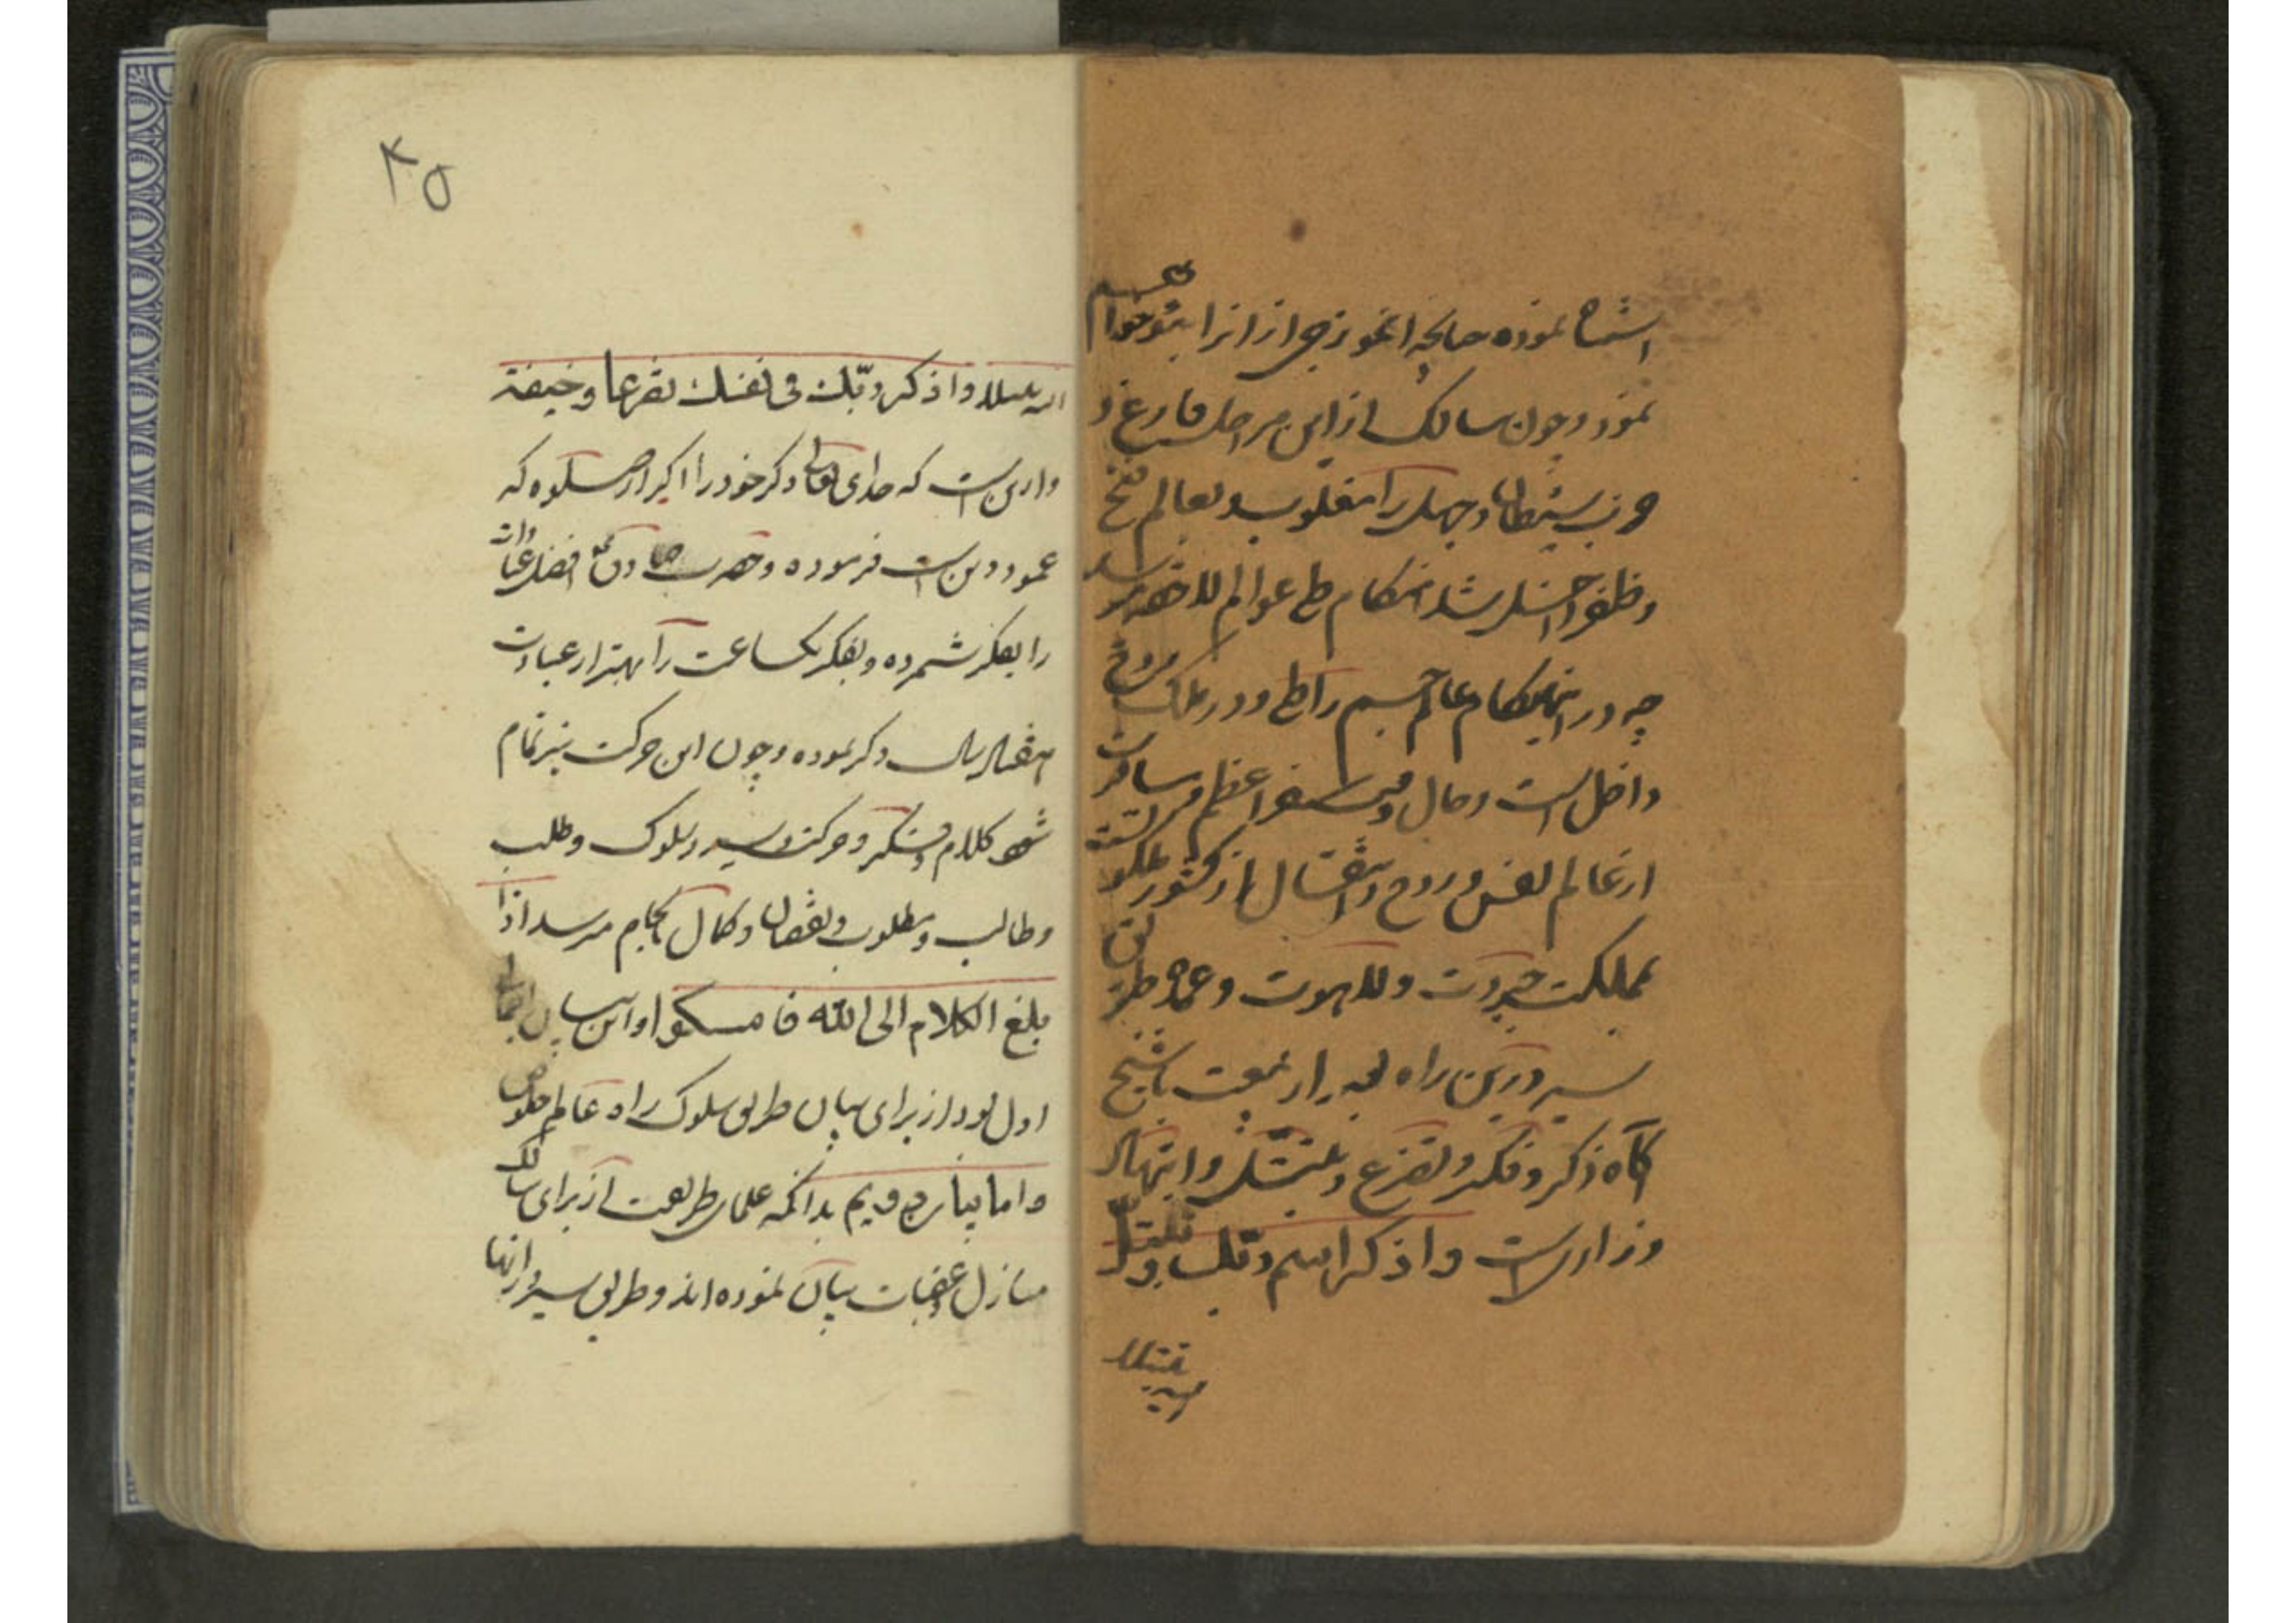 اشاره نموده چنانچه انموذجی از انرا بتو خواهیم
نمود و چون سالک از این مراحل فارغ و
حزب شیطان و جهل را مغلوب و بعالم فتح
و ظفر داخل شد هنگام طی عوالم لاحقه رسد
چه در این هنگام عالم جسم را طی و در ملک روح
داخل است و حال وقت سفر اعظم و مسافرت
از عالم نفس و روح و انتقال از کشور ملکوت
بمملکت جبروت و لاهوت و عمده طریق
سیر در این راه بعد از بیعت با شیخ
آگاه ذکر و فکر و تضرع و تبتل و ابتهال
و زاریست واذکر اسم ربّک و تبتّل
الیه تبتیلا
۴۵
الیه تبتیلا واذکر ربّک فی نفسک تضرعا وخیفة
و از این است که خدای تعالی ذکر خود را اکبر از صلوة که
عمود دین است فرموده و حضرت صادق افضل عبادات
را تفکر شمرده و تفکر یکساعت را بهتر از عبادت
هفتاد سال ذکر نموده و چون این حرکت نیز تمام
شود کلام و تفکر و حرکت و سیر و سلوک و طلب
و طالب و مطلوب و نقصان و کمال بانجام میرسد اذا
بلغ الکلام الی الله فامسکوا و این بیان اجمالی
اول بود از برای بیان طریق سلوک راه عالم خلوص
و اما بیان دویم بدانکه علمای طریقت از برای سالک
منازل و عقبات بیان نموده اند و طریق سیر در آنها